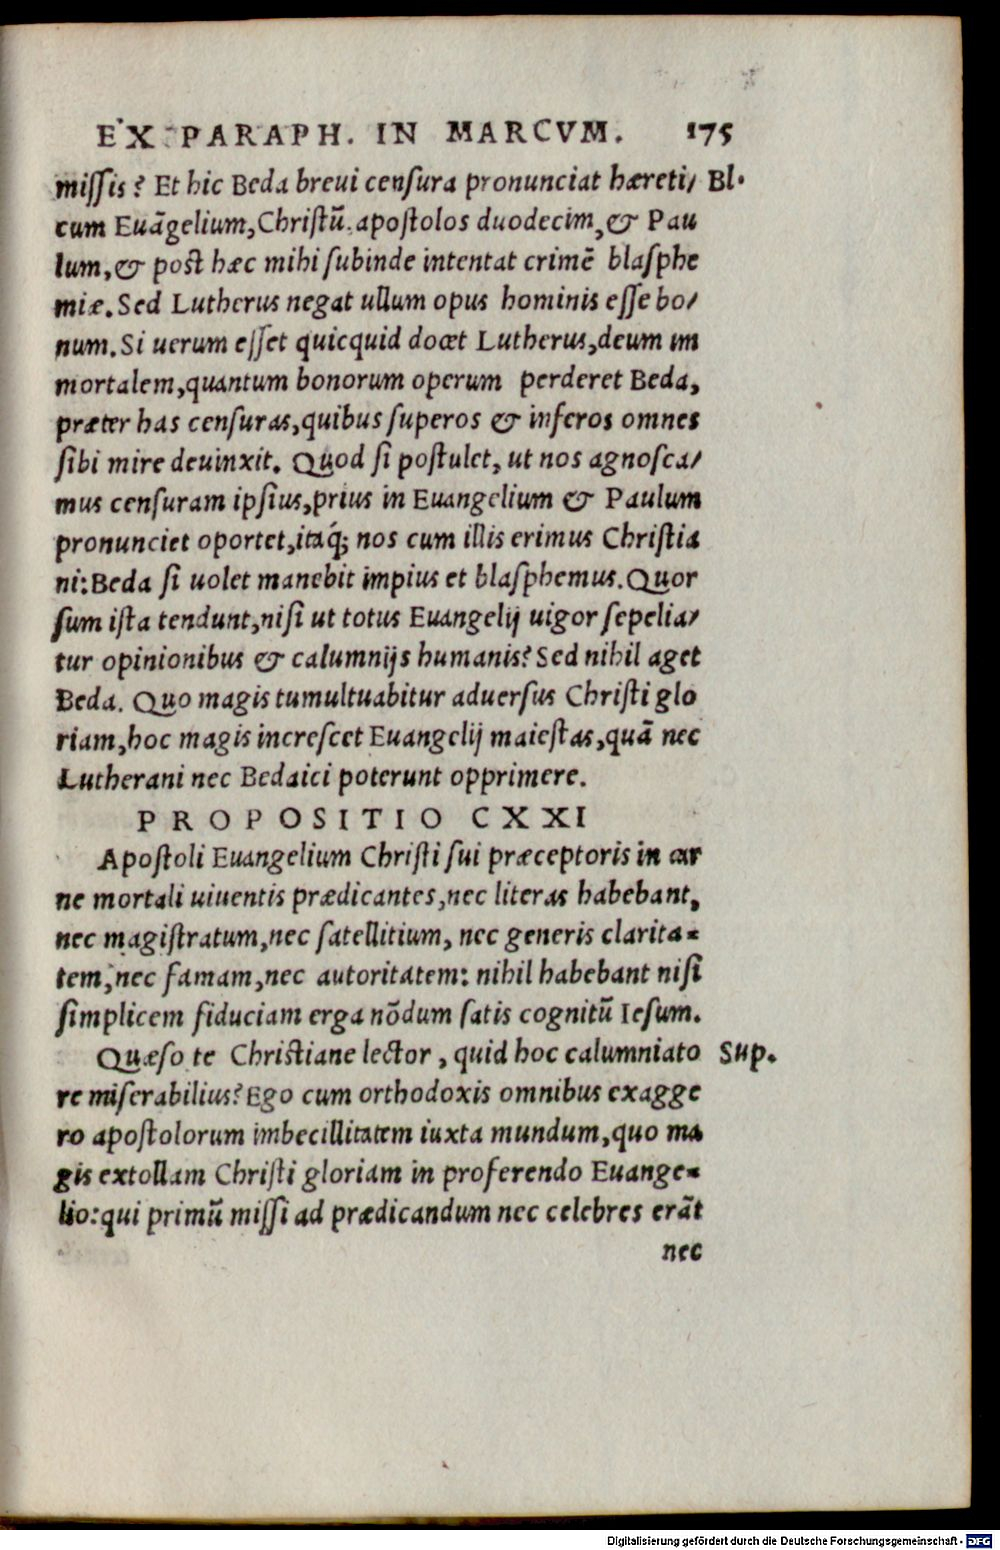 EX PARAPH. IN MARCVM. 175
missis? Et hic Beda breui censura pronunciat hæreti/ Bl.
cum Euãgelium, Christũ, apostolos duodecim, & Pau
lum, & post hæc mihi subinde intentat crimẽ blasphe
miæ. Sed Lutherus negat ullum opus hominis esse bo/
num. Si uerum esset quicquid docet Lutherus, deum im
mortalem, quantum bonorum operum perderet Beda,
præter has censuras, quibus superos & inferos omnes
sibi mire deuinxit. Quod si postulet, ut nos agnosca/
mus censuram ipsius, prius in Euangelium & Paulum
pronunciet oportet, itaq́; nos cum illis erimus Christia
ni: Beda si uolet manebit impius et blasphemus. Quor
sum ista tendunt, nisi ut totus Euangelij uigor sepelia/
tur opinionibus & calumnijs humanis? Sed nihil aget
Beda. Quo magis tumultuabitur aduersus Christi glo
riam, hoc magis increscet Euangelij maiestas, quã nec
Lutherani nec Bedaici poterunt opprimere.
PROPOSITIO CXXI
Apostoli Euangelium Christi sui præceptoris in car
ne mortali uiuentis prædicantes, nec literas habebant,
nec magistratum, nec satellitium, nec generis clarita-
tem, nec famam, nec autoritatem: nihil habebant nisi
simplicem fiduciam erga nõdum satis cognitũ Iesum.
Quæso te Christiane lector, quid hoc calumniato Sup.
re miserabilius? Ego cum orthodoxis omnibus exagge
ro apostolorum imbecillitatem iuxta mundum, quo ma
gis extollam Christi gloriam in proferendo Euange-
lio: qui primũ missi ad prædicandum nec celebres erãt
nec
Digitalisierung gefördert durch die Deutsche Forschungsgemeinschaft - DFG